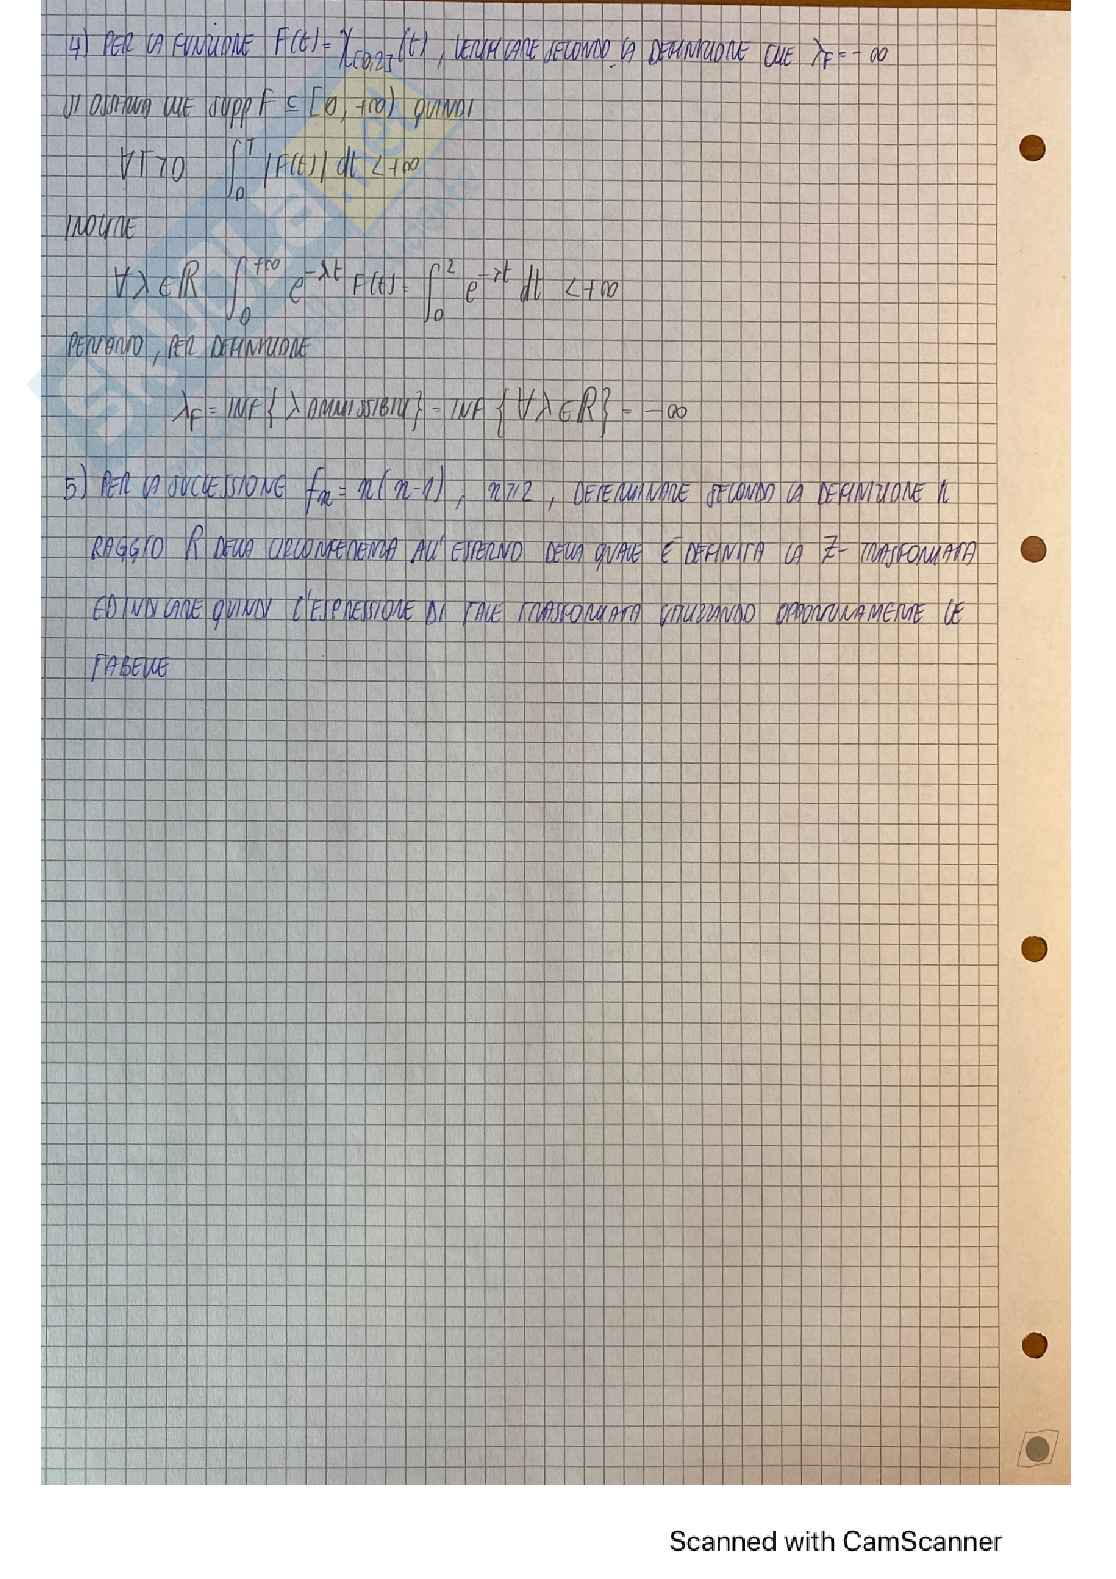 4) PER LA FUNZIONE F(t) = χ[0,2](t), VERIFICARE SECONDO LA DEFINIZIONE CHE λF = -∞
SI OSSERVA CHE SUPP F ⊆ [0, +∞) QUINDI
∀T>0 ∫₀ᵀ |F(t)| dt < +∞
INOLTRE
∀λ∈ℝ ∫₀^+∞ e^-λt F(t) = ∫₀² e^-λt dt < +∞
PERTANTO, PER DEFINIZIONE
λF = INF{λ AMMISSIBILI} = INF{∀λ∈ℝ} = -∞
5) PER LA SUCCESSIONE fn = n(n-1), n≥2, DETERMINARE SECONDO LA DEFINIZIONE IL
RAGGIO R DELLA CIRCONFERENZA ALL'ESTERNO DELLA QUALE È DEFINITA LA Z-TRASFORMATA
ED INDICARE QUINDI L'ESPRESSIONE DI TALE TRASFORMATA UTILIZZANDO OPPORTUNAMENTE LE
TABELLE
Scanned with CamScanner